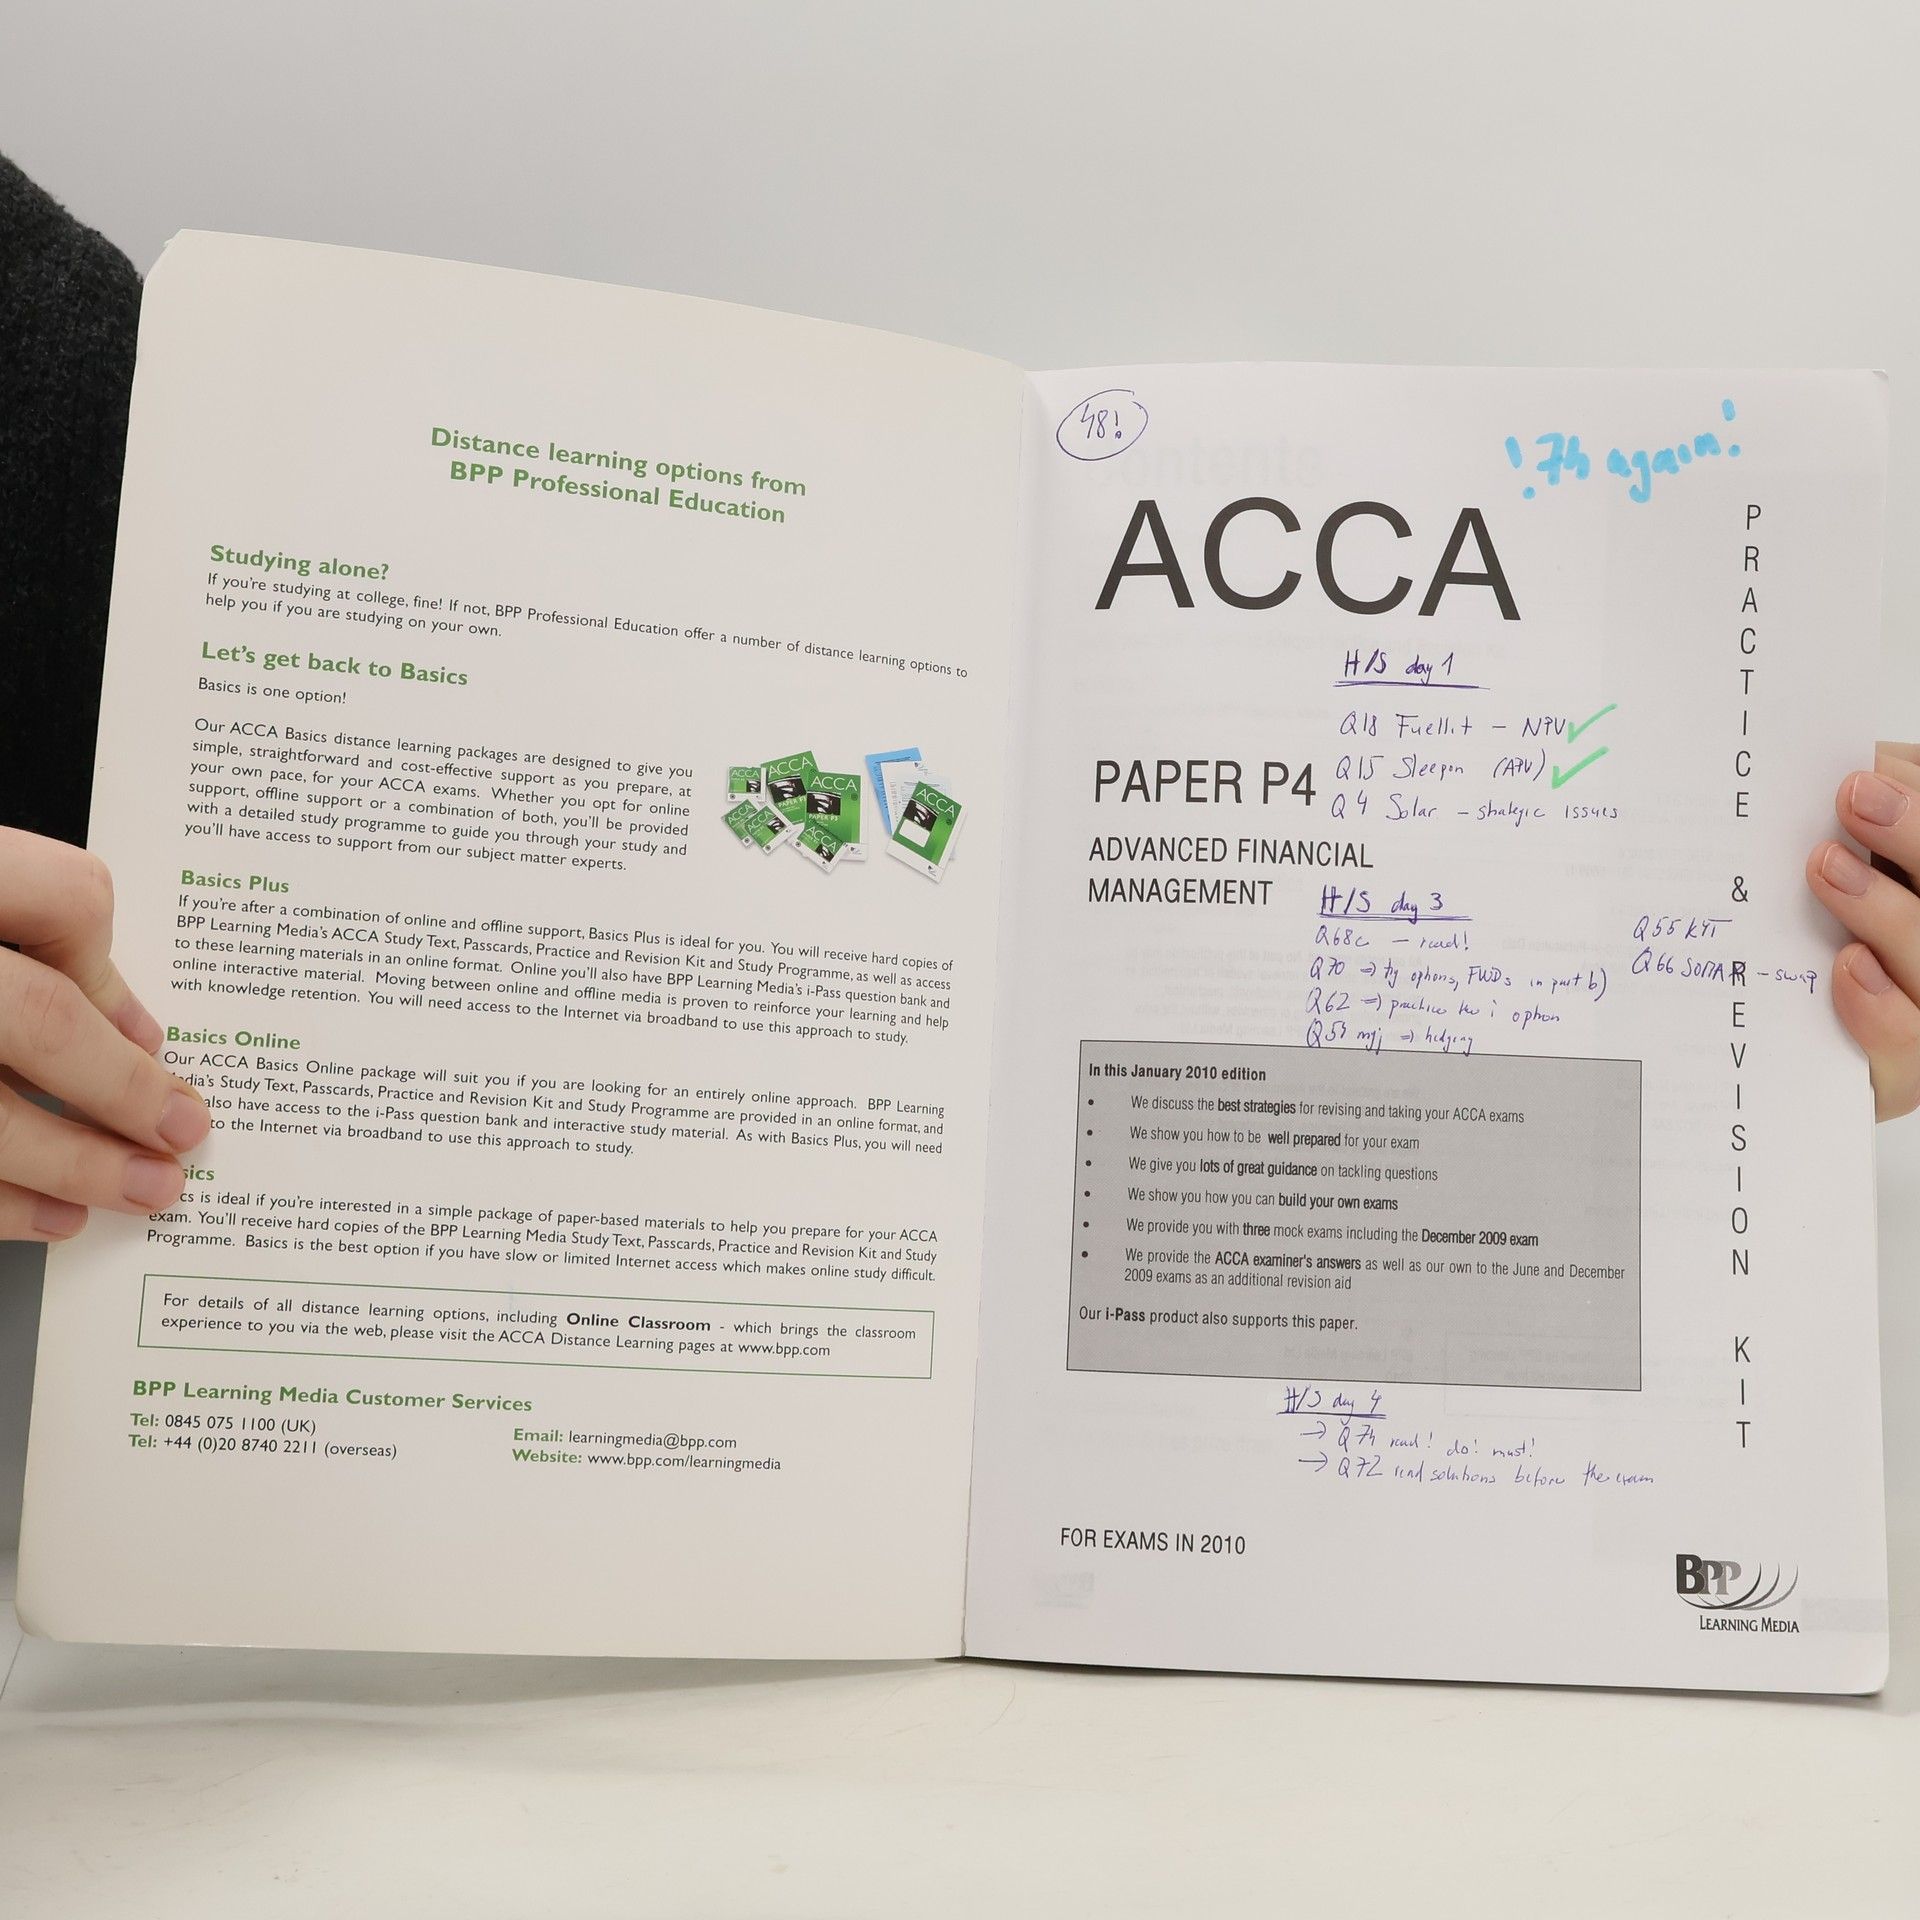 Distance learning options from
BPP Professional Education
Studying alone?
If you're studying at college, fine! If not, BPP Professional Education offer a number of distance learning options to
help you if you are studying on your own.
Let's get back to Basics
Basics is one option!
Our ACCA Basics distance learning packages are designed to give you
simple, straightforward and cost-effective support as you prepare, at
your own pace, for your ACCA exams. Whether you opt for online
support, offline support or a combination of both, you'll be provided
with a detailed study programme to guide you through your study and
you'll have access to support from our subject matter experts.
ACCA
ACCA
ACCA
ACCA
Basics Plus
If you're after a combination of online and offline support, Basics Plus is ideal for you. You will receive hard copies of
BPP Learning Media's ACCA Study Text, Passcards, Practice and Revision Kit and Study Programme, as well as access
to these learning materials in an online format. Online you'll also have BPP Learning Media's i-Pass question bank and
online interactive material. Moving between online and offline media is proven to reinforce your learning and help
with knowledge retention. You will need access to the Internet via broadband to use this approach to study.
Basics Online
Our ACCA Basics Online package will suit you if you are looking for an entirely online approach. BPP Learning
dia's Study Text, Passcards, Practice and Revision Kit and Study Programme are provided in an online format, and
also have access to the i-Pass question bank and interactive study material. As with Basics Plus, you will need
to the Internet via broadband to use this approach to study.
sics
cs is ideal if you're interested in a simple package of paper-based materials to help you prepare for your ACCA
exam. You'll receive hard copies of the BPP Learning Media Study Text, Passcards, Practice and Revision Kit and Study
Programme. Basics is the best option if you have slow or limited Internet access which makes online study difficult.
For details of all distance learning options, including Online Classroom - which brings the classroom
experience to you via the web, please visit the ACCA Distance Learning pages at www.bpp.com
BPP Learning Media Customer Services
Tel: 0845 075 1100 (UK)
Tel: +44 (0)20 8740 2211 (overseas)
Email: learningmedia@bpp.com
Website: www.bpp.com/learningmedia
48!
! 74 again!
ACCA
H/S day 1
Q18 Fuellit – NPV
Q15 Sleepon (APV)
Q4 Solar – strategic issues
PAPER P4
ADVANCED FINANCIAL
MANAGEMENT
H/S day 3
Q68c – read!
Q70 ⇒ try options, FWDs in part b)
Q62 ⇒ practice the i option
⇒ hedging
Q55 KYT
Q66 SOMAR – swap
In this January 2010 edition
• We discuss the best strategies for revising and taking your ACCA exams
• We show you how to be well prepared for your exam
• We give you lots of great guidance on tackling questions
• We show you how you can build your own exams
• We provide you with three mock exams including the December 2009 exam
• We provide the ACCA examiner's answers as well as our own to the June and December
2009 exams as an additional revision aid
Our i-Pass product also supports this paper.
H/S day 4
→ Q74 read! do! must!
→ Q72 read solutions before the exam
FOR EXAMS IN 2010
PRACTICE & REVISION KIT
BPP
LEARNING MEDIA